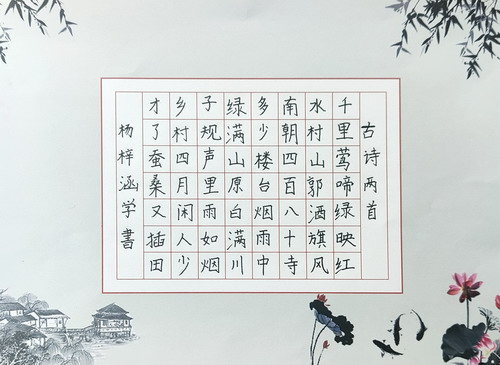 古诗两首
千里莺啼绿映红
水村山郭酒旗风
南朝四百八十寺
多少楼台烟雨中
绿满山原白满川
子规声里雨如烟
乡村四月闲人少
才了蚕桑又插田
杨梓涵学書